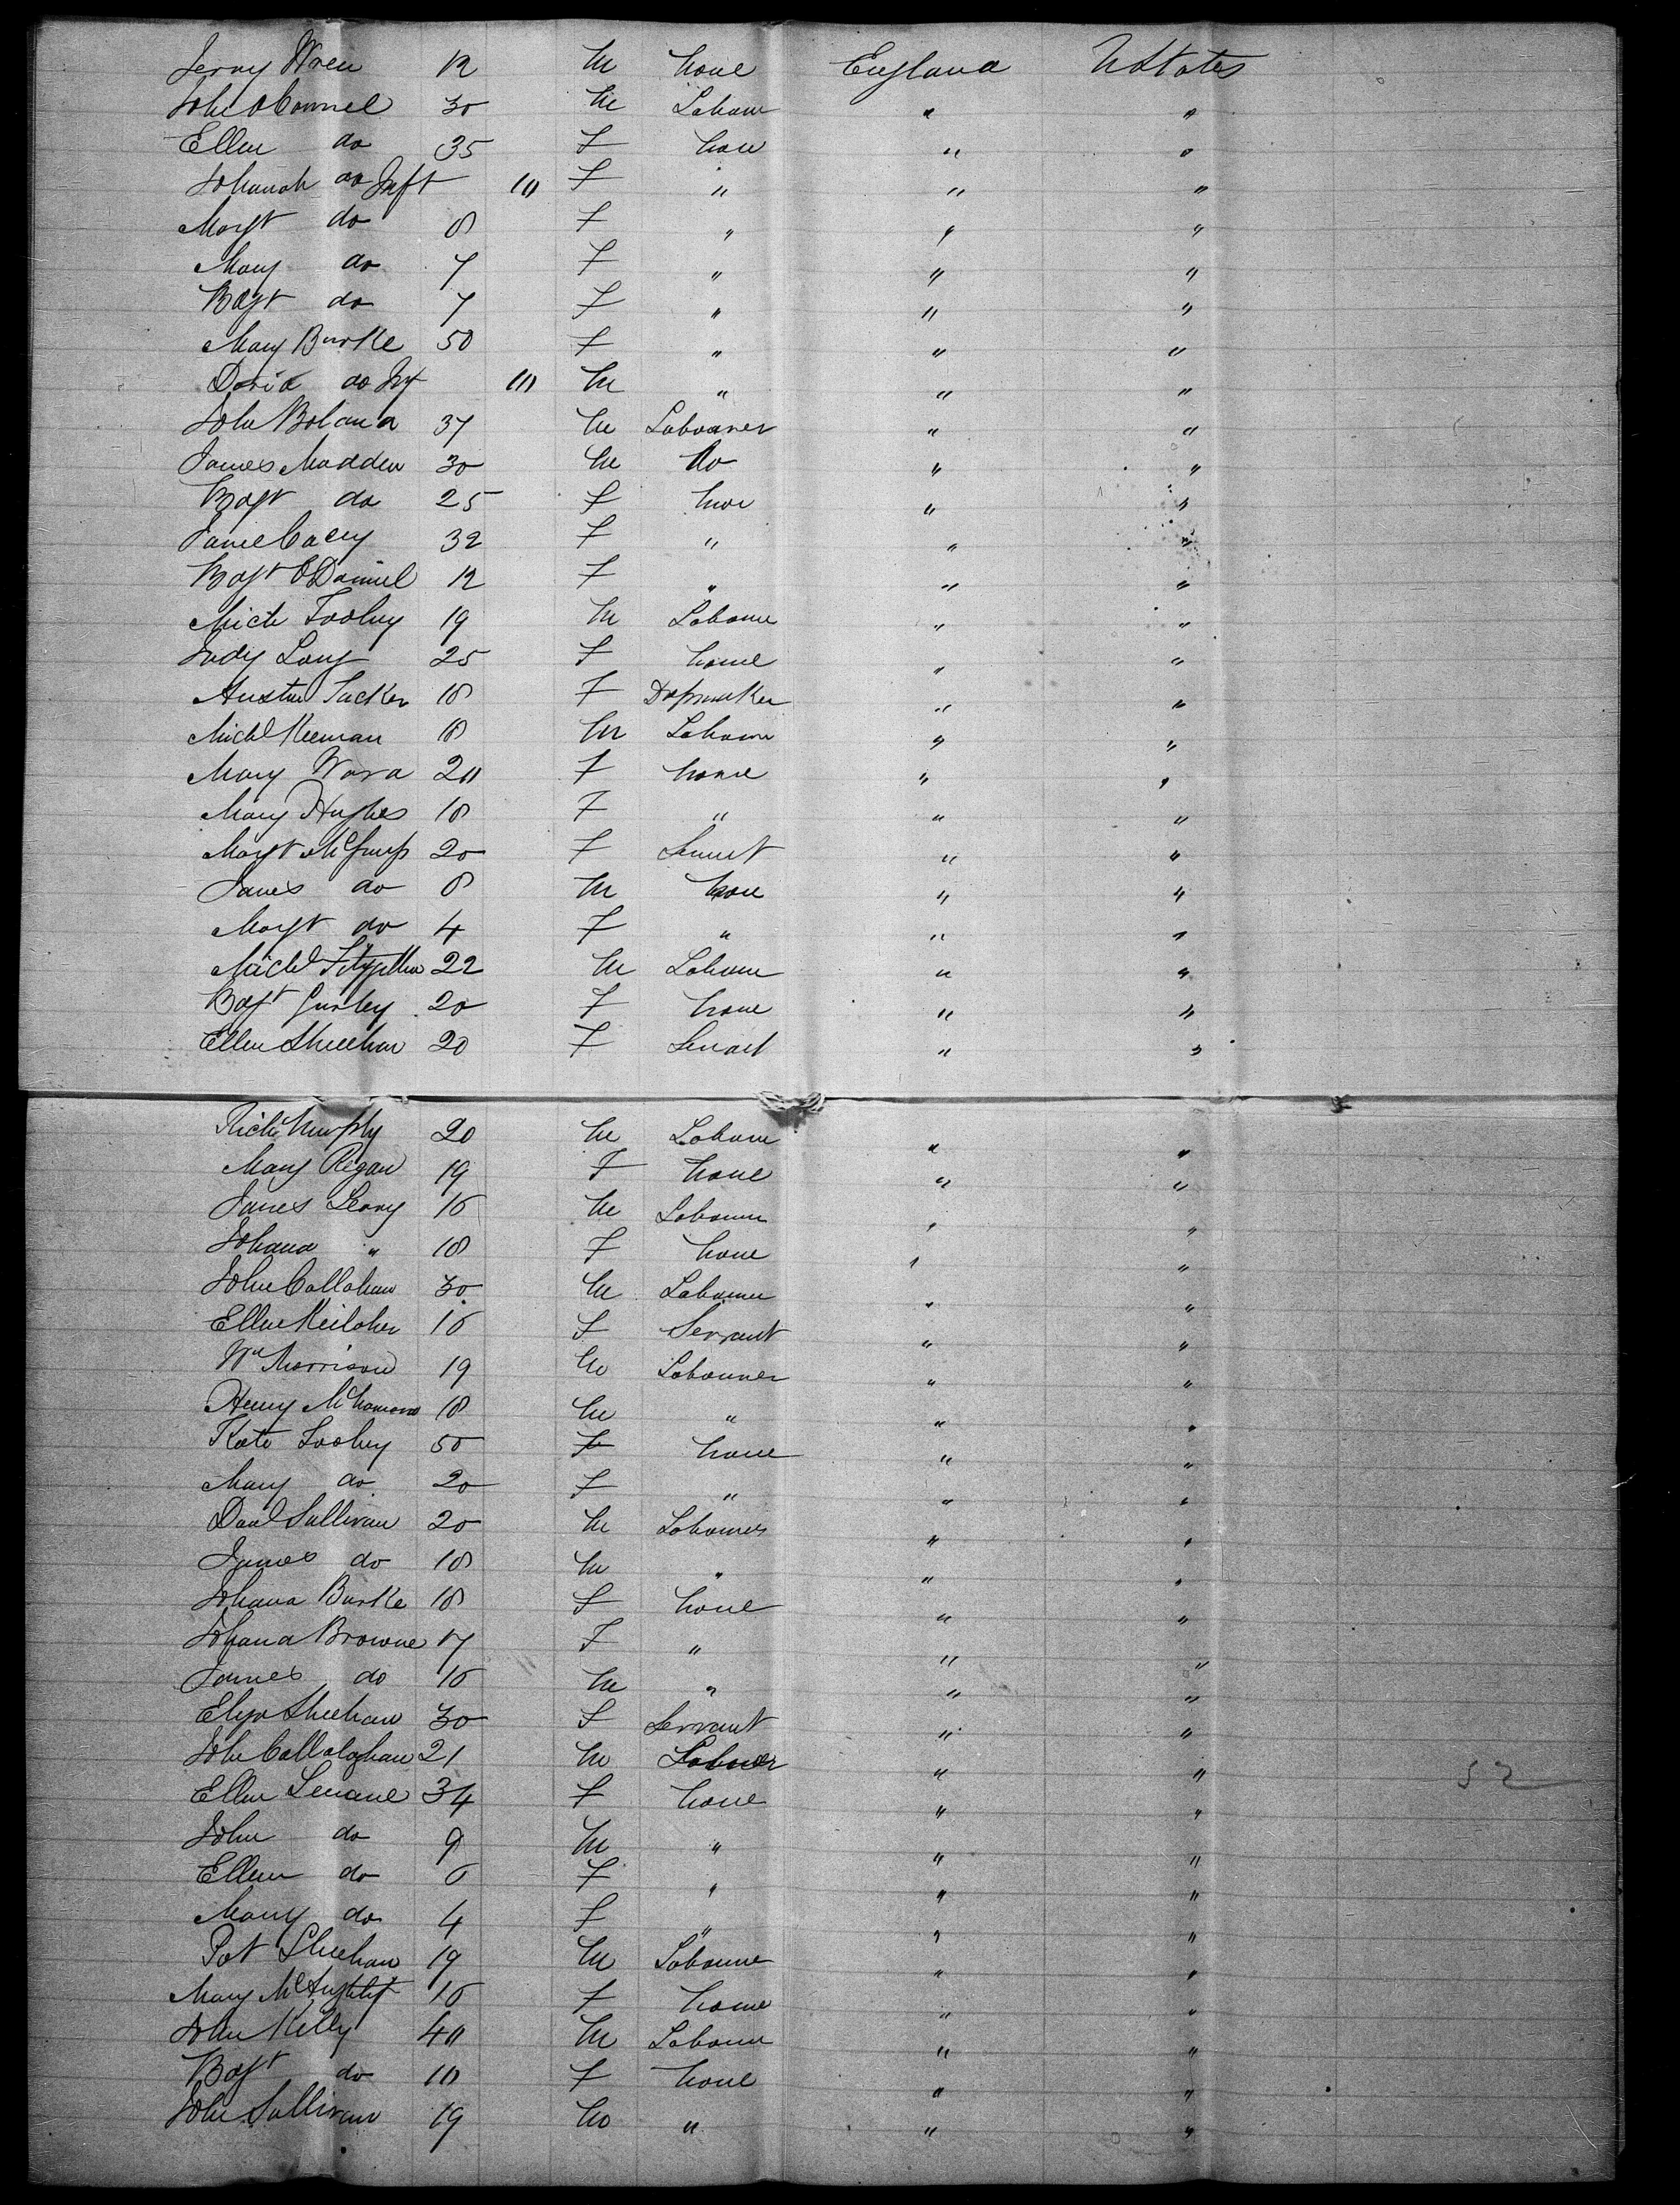 Jerry Wren 12 M None England UStates
John OConnel 30 M Labour " "
Ellen do 35 F None " "
Johanah do Inft 10 F " " "
Margt do 8 F " " "
Mary do 7 F " " "
Bdgt do 7 F " " "
Mary Burke 50 F " " "
David do Inf 10 M " " "
John Boland 37 M Labourer " "
James Madden 30 M Do " "
Bdgt do 25 F None " "
Jane Casey 32 F " " "
Bdgt ODaniel 12 F " " "
Mich Toohy 19 M Labour " "
Judy Long 25 F None " "
Tucker 18 F " "
Michl Keenan 18 M Labour " "
Mary Ward 20 F None " "
Mary Hughes 18 F " " "
Margt 20 F Servnt " "
James do 8 M None " "
Margt do 4 F " " "
Michl 22 M Labour " "
Bdgt 20 F None " "
Ellen Sheehan 20 F Servant " "
Richd Murphy 20 M Labour " "
Mary Regan 19 F None " "
James Leary 16 M Labourer " "
Johana " 18 F None " "
John Callahan 30 M Labourer " "
Ellen Keilaher 16 F Servant " "
Wm Morrison 19 M Labourer " "
Henry McNamara 18 M " " "
Kate Toohy 50 F None " "
Mary do 20 F " " "
Danl Sullivan 20 M Labourer " "
James do 18 M " " "
Johana Burke 18 F None " "
Johana Browne 17 F " " "
James do 16 M " " "
Eliza Sheehan 30 F Servant " "
John Callalaghan 21 M Labourer " "
Ellen Lenane 34 F None " " 52
John do 9 M " " "
Ellen do 6 F " " "
Mary do 4 F " " "
Pat Sheehan 19 M Labourer " "
Mary 16 F None " "
John Kelly 40 M Labour " "
Bdgt do 10 F None " "
John Sullivan 19 M " " "